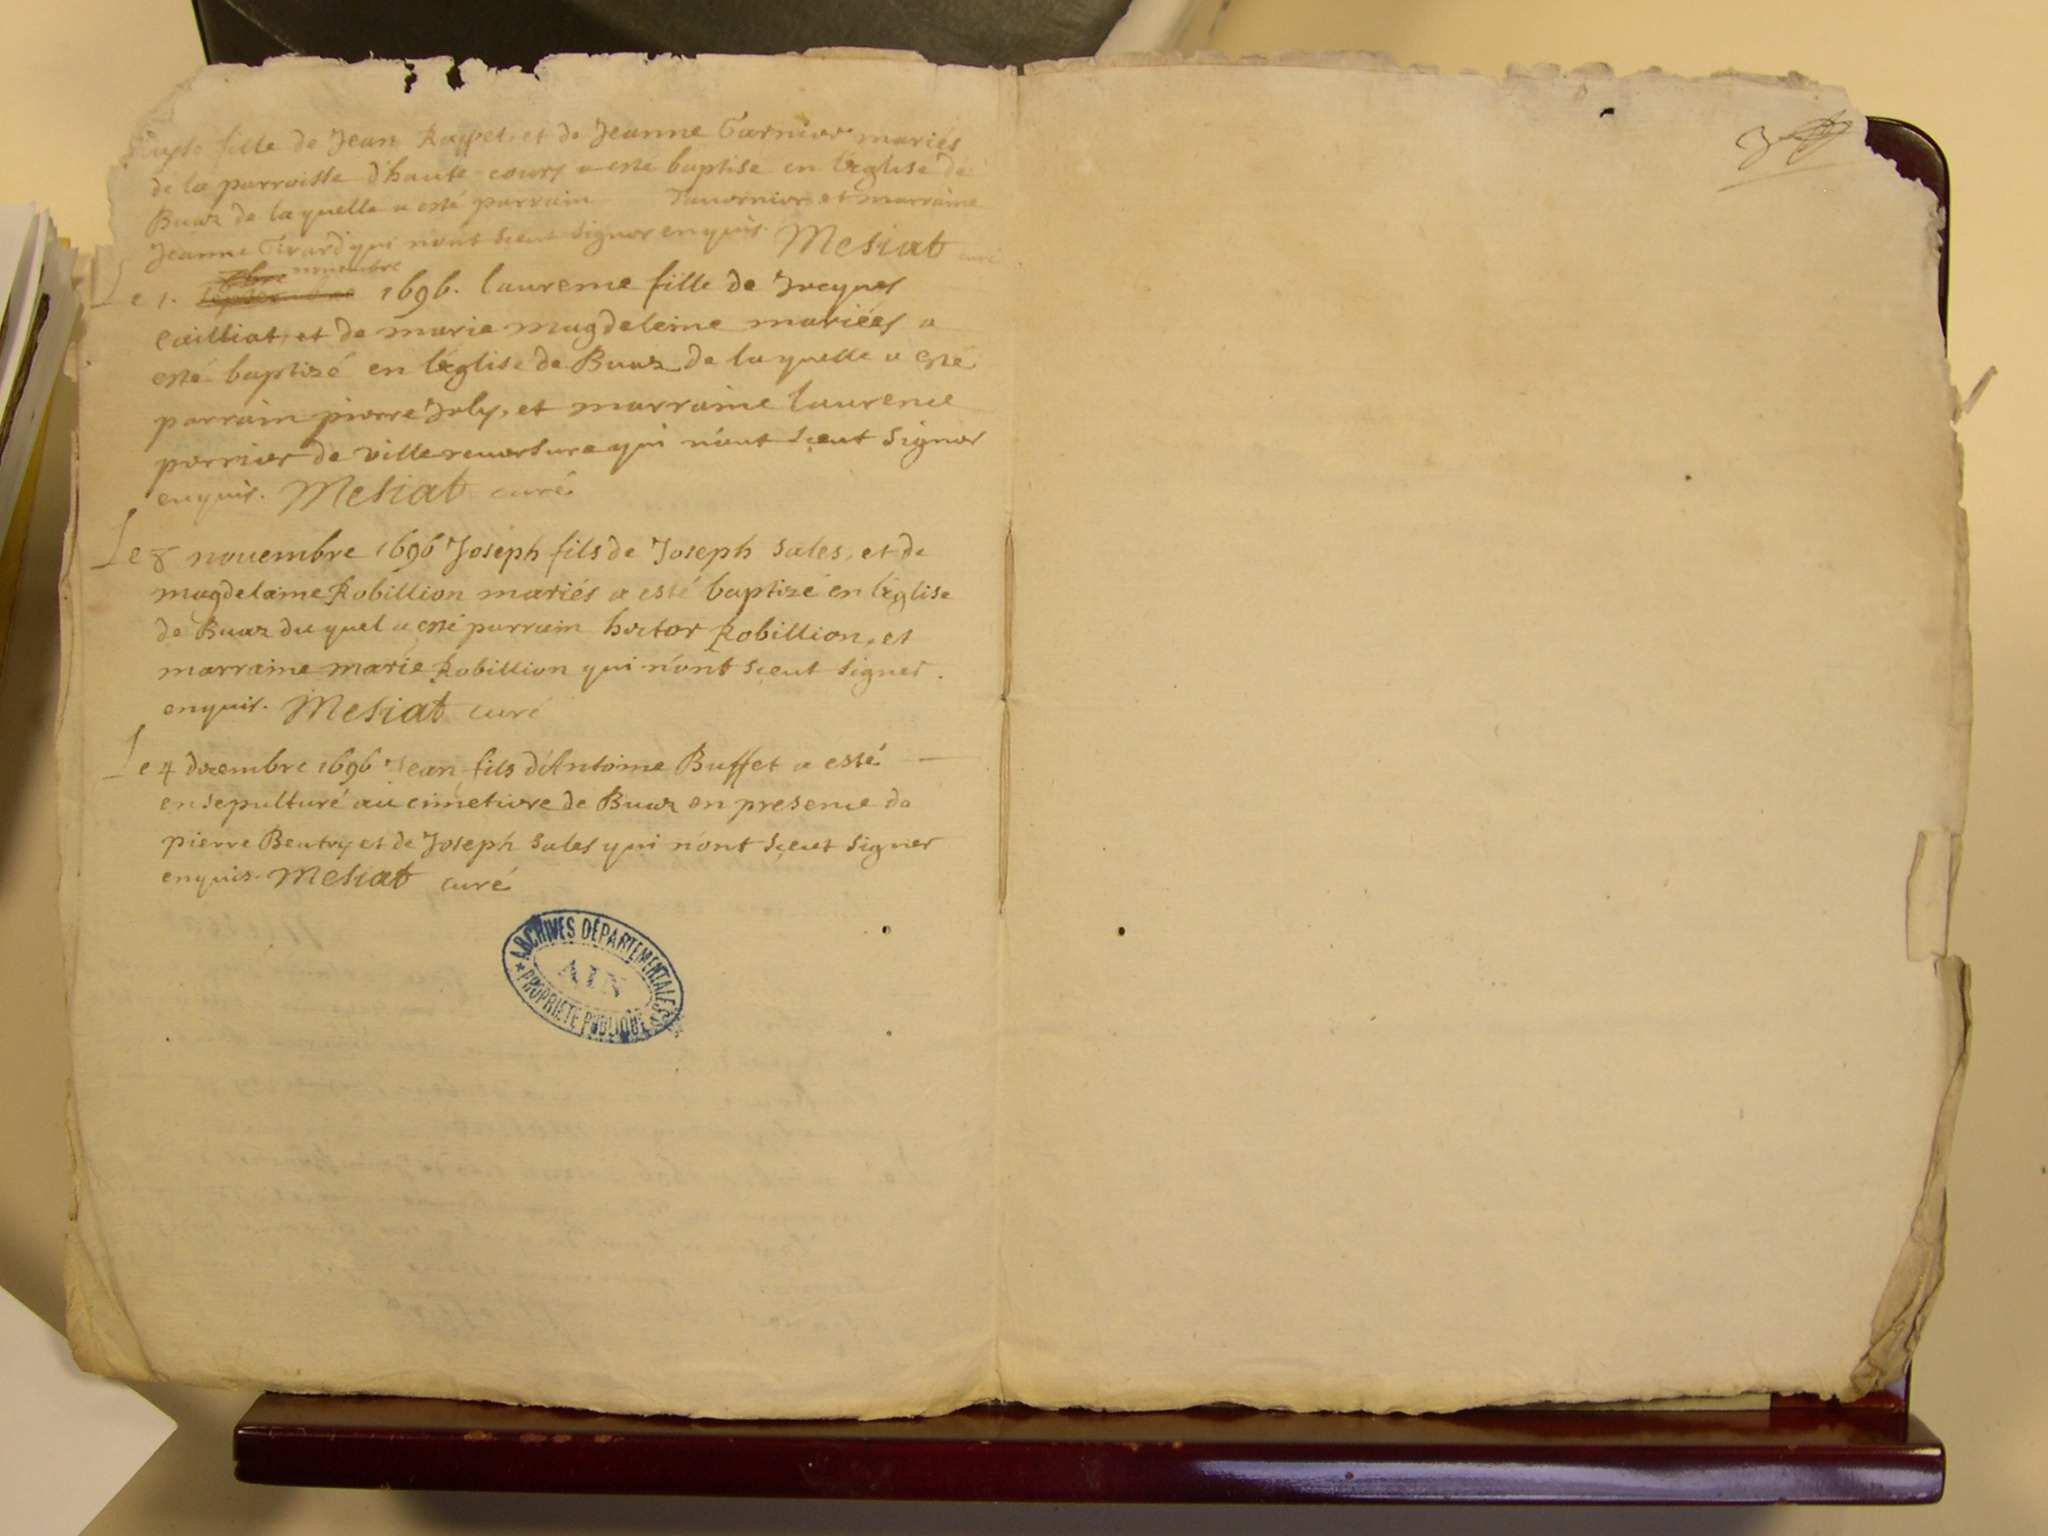 fille de Jean Rappet, et de Jeanne Garnier mariés
de la parroisse d'haute cours a esté baptisé en l'église de
Buaz de laquelle a esté parrain Tavernier et marraine
Jeanne Girard qui n'ont sceut signer enquis. Mesiat curé
Le 1. septembre 7bre novembre 1696. laurence fille de Jacques
Cailliat, et de marie magdeleine mariées a
esté baptizé en l'église de Buaz de laquelle a esté
parrain pierre Joly, et marraine laurence
perrier de villereversure qui n'ont sceut signer
enquis. Mesiat curé
Le 8 novembre 1696 Joseph fils de Joseph Sales, et de
magdelaine Robillion mariés a esté baptizé en l'église
de Buaz duquel a esté parrain hector Robillion, et
marraine marie Robillion qui n'ont sceut signer.
enquis. Mesiat curé
Le 4 decembre 1696 Jean fils d'Antoine Buffet a esté
ensepulturé au cimetiere de Buaz en presence de
pierre Beutry et de Joseph Sales qui n'ont sceut signer
enquis. Mesiat curé
ARCHIVES DÉPARTEMENTALES
AIN
* PROPRIÉTÉ PUBLIQUE *